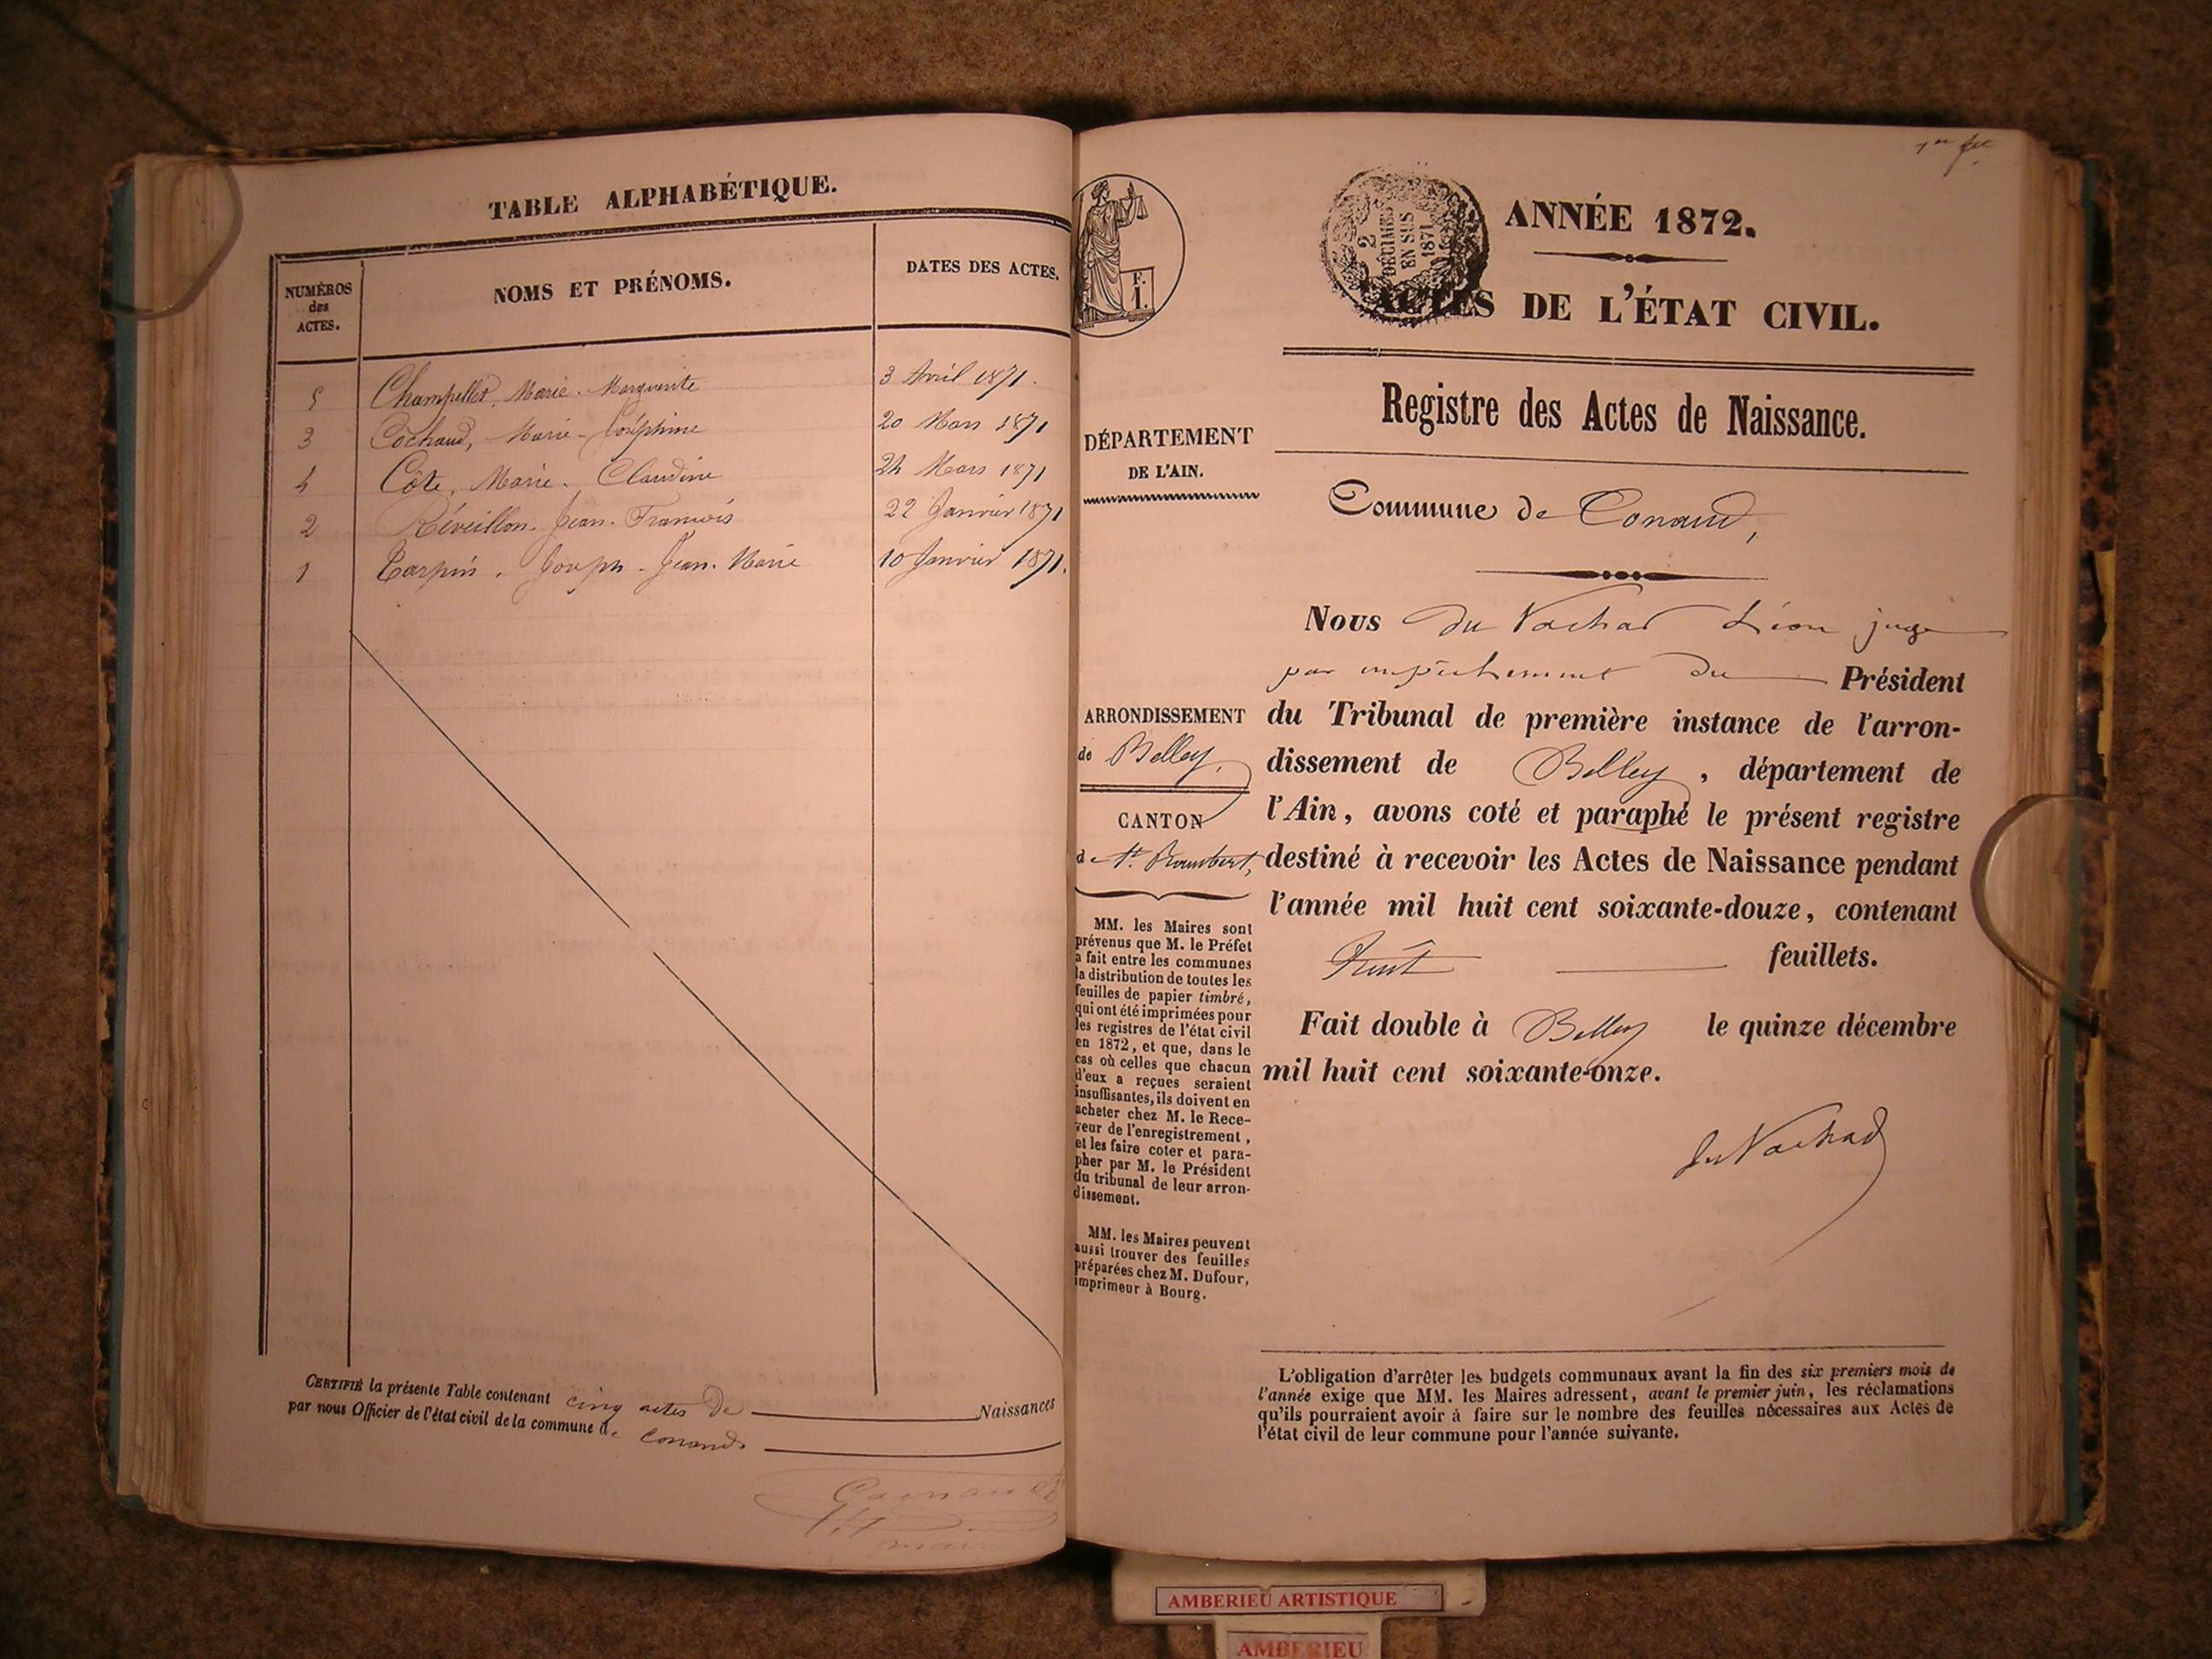 TABLE ALPHABÉTIQUE.
NUMÉROS
des
ACTES.
NOMS ET PRÉNOMS.
DATES DES ACTES.
5 Champellet, Marie-Marguerite 3 Avril 1871.
3 Cochaud, Marie-Joséphine 20 Mars 1871
4 Côte, Marie-Claudine 24 Mars 1871
2 Réveillon, Jean-François 22 Janvier 1871
1 Tarpin, Joseph-Jean-Marie 10 Janvier 1871.
CERTIFIÉ la présente Table contenant cinq actes de Naissances
par nous Officier de l'état civil de la commune de Conand.
maire
1er fet
F.
I.
2
DÉCIMES
EN SUS
1871
ANNÉE 1872.
ACTES DE L'ÉTAT CIVIL.
Registre des Actes de Naissance.
DÉPARTEMENT
DE L'AIN.
Commune de Conand,
Nous du Vachat Léon juge
par empêchement du Président
du Tribunal de première instance de l'arron-
dissement de Belley, département de
l'Ain, avons coté et paraphé le présent registre
destiné à recevoir les Actes de Naissance pendant
l'année mil huit cent soixante-douze, contenant
huit feuillets.
Fait double à Belley le quinze décembre
mil huit cent soixante-onze.
du Vachat
ARRONDISSEMENT
de Belley,
CANTON
de St. Rambert,
MM. les Maires sont
prévenus que M. le Préfet
a fait entre les communes
la distribution de toutes les
feuilles de papier timbré,
qui ont été imprimées pour
les registres de l'état civil
en 1872, et que, dans le
cas où celles que chacun
d'eux a reçues seraient
insuffisantes, ils doivent en
acheter chez M. le Rece-
veur de l'enregistrement,
et les faire coter et para-
pher par M. le Président
du tribunal de leur arron-
dissement.
MM. les Maires peuvent
aussi trouver des feuilles
préparées chez M. Dufour,
imprimeur à Bourg.
L'obligation d'arrêter les budgets communaux avant la fin des six premiers mois de
l'année exige que MM. les Maires adressent, avant le premier juin, les réclamations
qu'ils pourraient avoir à faire sur le nombre des feuilles nécessaires aux Actes de
l'état civil de leur commune pour l'année suivante.
AMBERIEU ARTISTIQUE
AMBERIEU